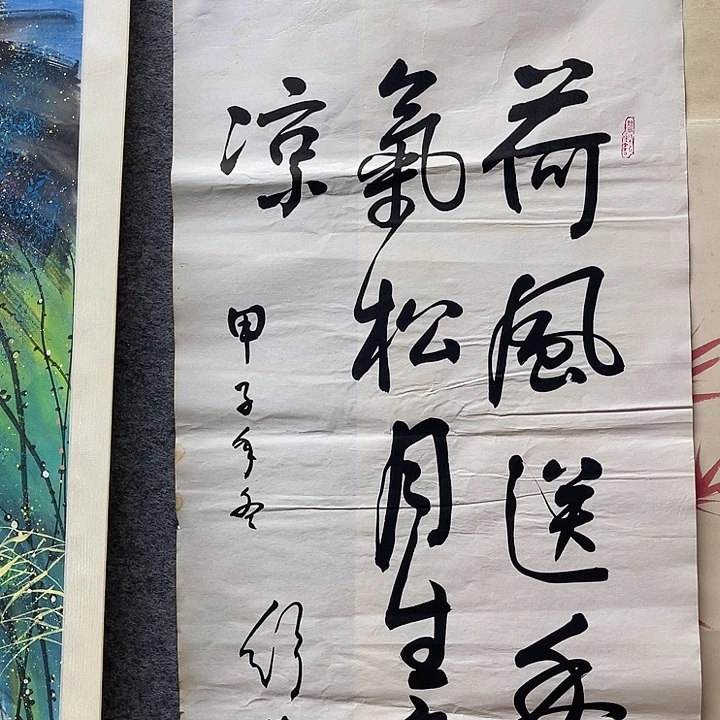 荷風送香
氣松月生
凉
甲子年冬